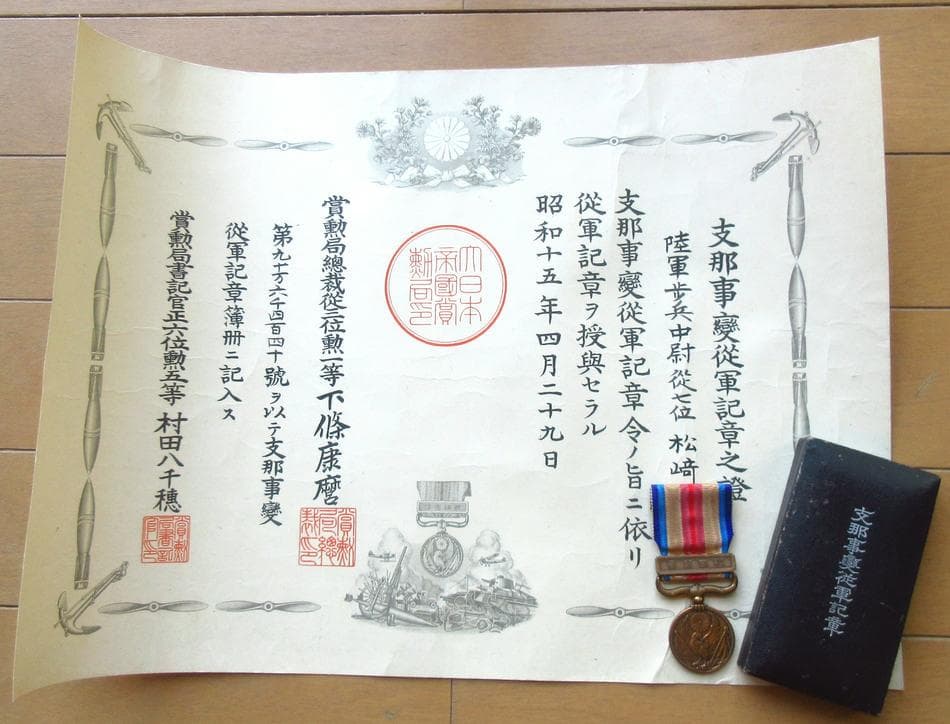 支那事變從軍記章之證
陸軍步兵中尉從七位 松﨑
支那事變從軍記章令ノ旨ニ依リ
從軍記章ヲ授與セラル
昭和十五年四月二十九日
大日本
帝國賞
勲局印
賞勲局總裁從三位勲一等 下條康麿
賞勲局總裁印
第九十六万六千四百四十號ヲ以テ支那事變
從軍記章簿册ニ記入ス
賞勲局書記官正六位勲五等 村田八千穗
支那事變從軍記章